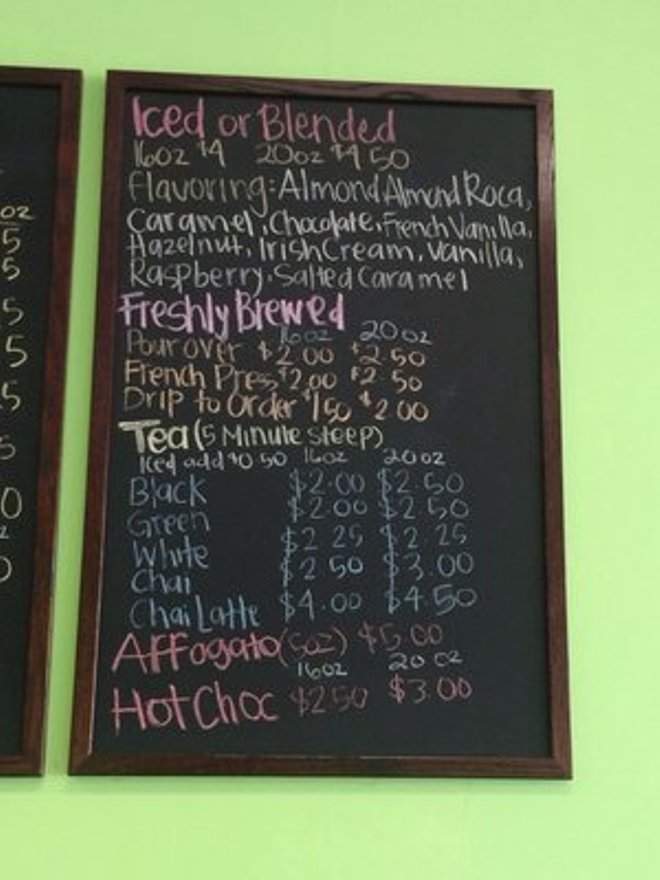 Iced or Blended
16oz $4 20oz $4 50
Flavoring: Almond Almond Roca,
Caramel, Chocolate, French Vanilla,
Hazelnut, Irish Cream, Vanilla,
Raspberry, Salted Caramel
Freshly Brewed
16oz 20oz
Pour over $2.00 $2.50
French Press $2.00 $2.50
Drip to Order $1.50 $2.00
Tea (5 Minute steep)
Iced add $0.50 16oz 20oz
Black $2.00 $2.50
Green $2.00 $2.50
White $2.25 $2.25
Chai $2.50 $3.00
Chai Latte $4.00 $4.50
Affogato (5oz) $5.00
16oz 20oz
Hot Choc $2.50 $3.00
oz
5
5
5
5
5
5
0